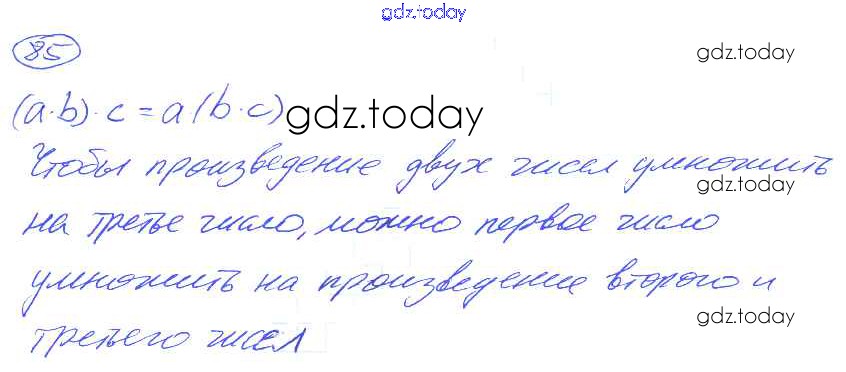 gdz.today
85
gdz.today
(a·b)·c=a(b·c)
gdz.today
Чтобы произведение двух чисел умножить
gdz.today
на третье число, можно первое число
умножить на произведение второго и
третьего чисел
gdz.today